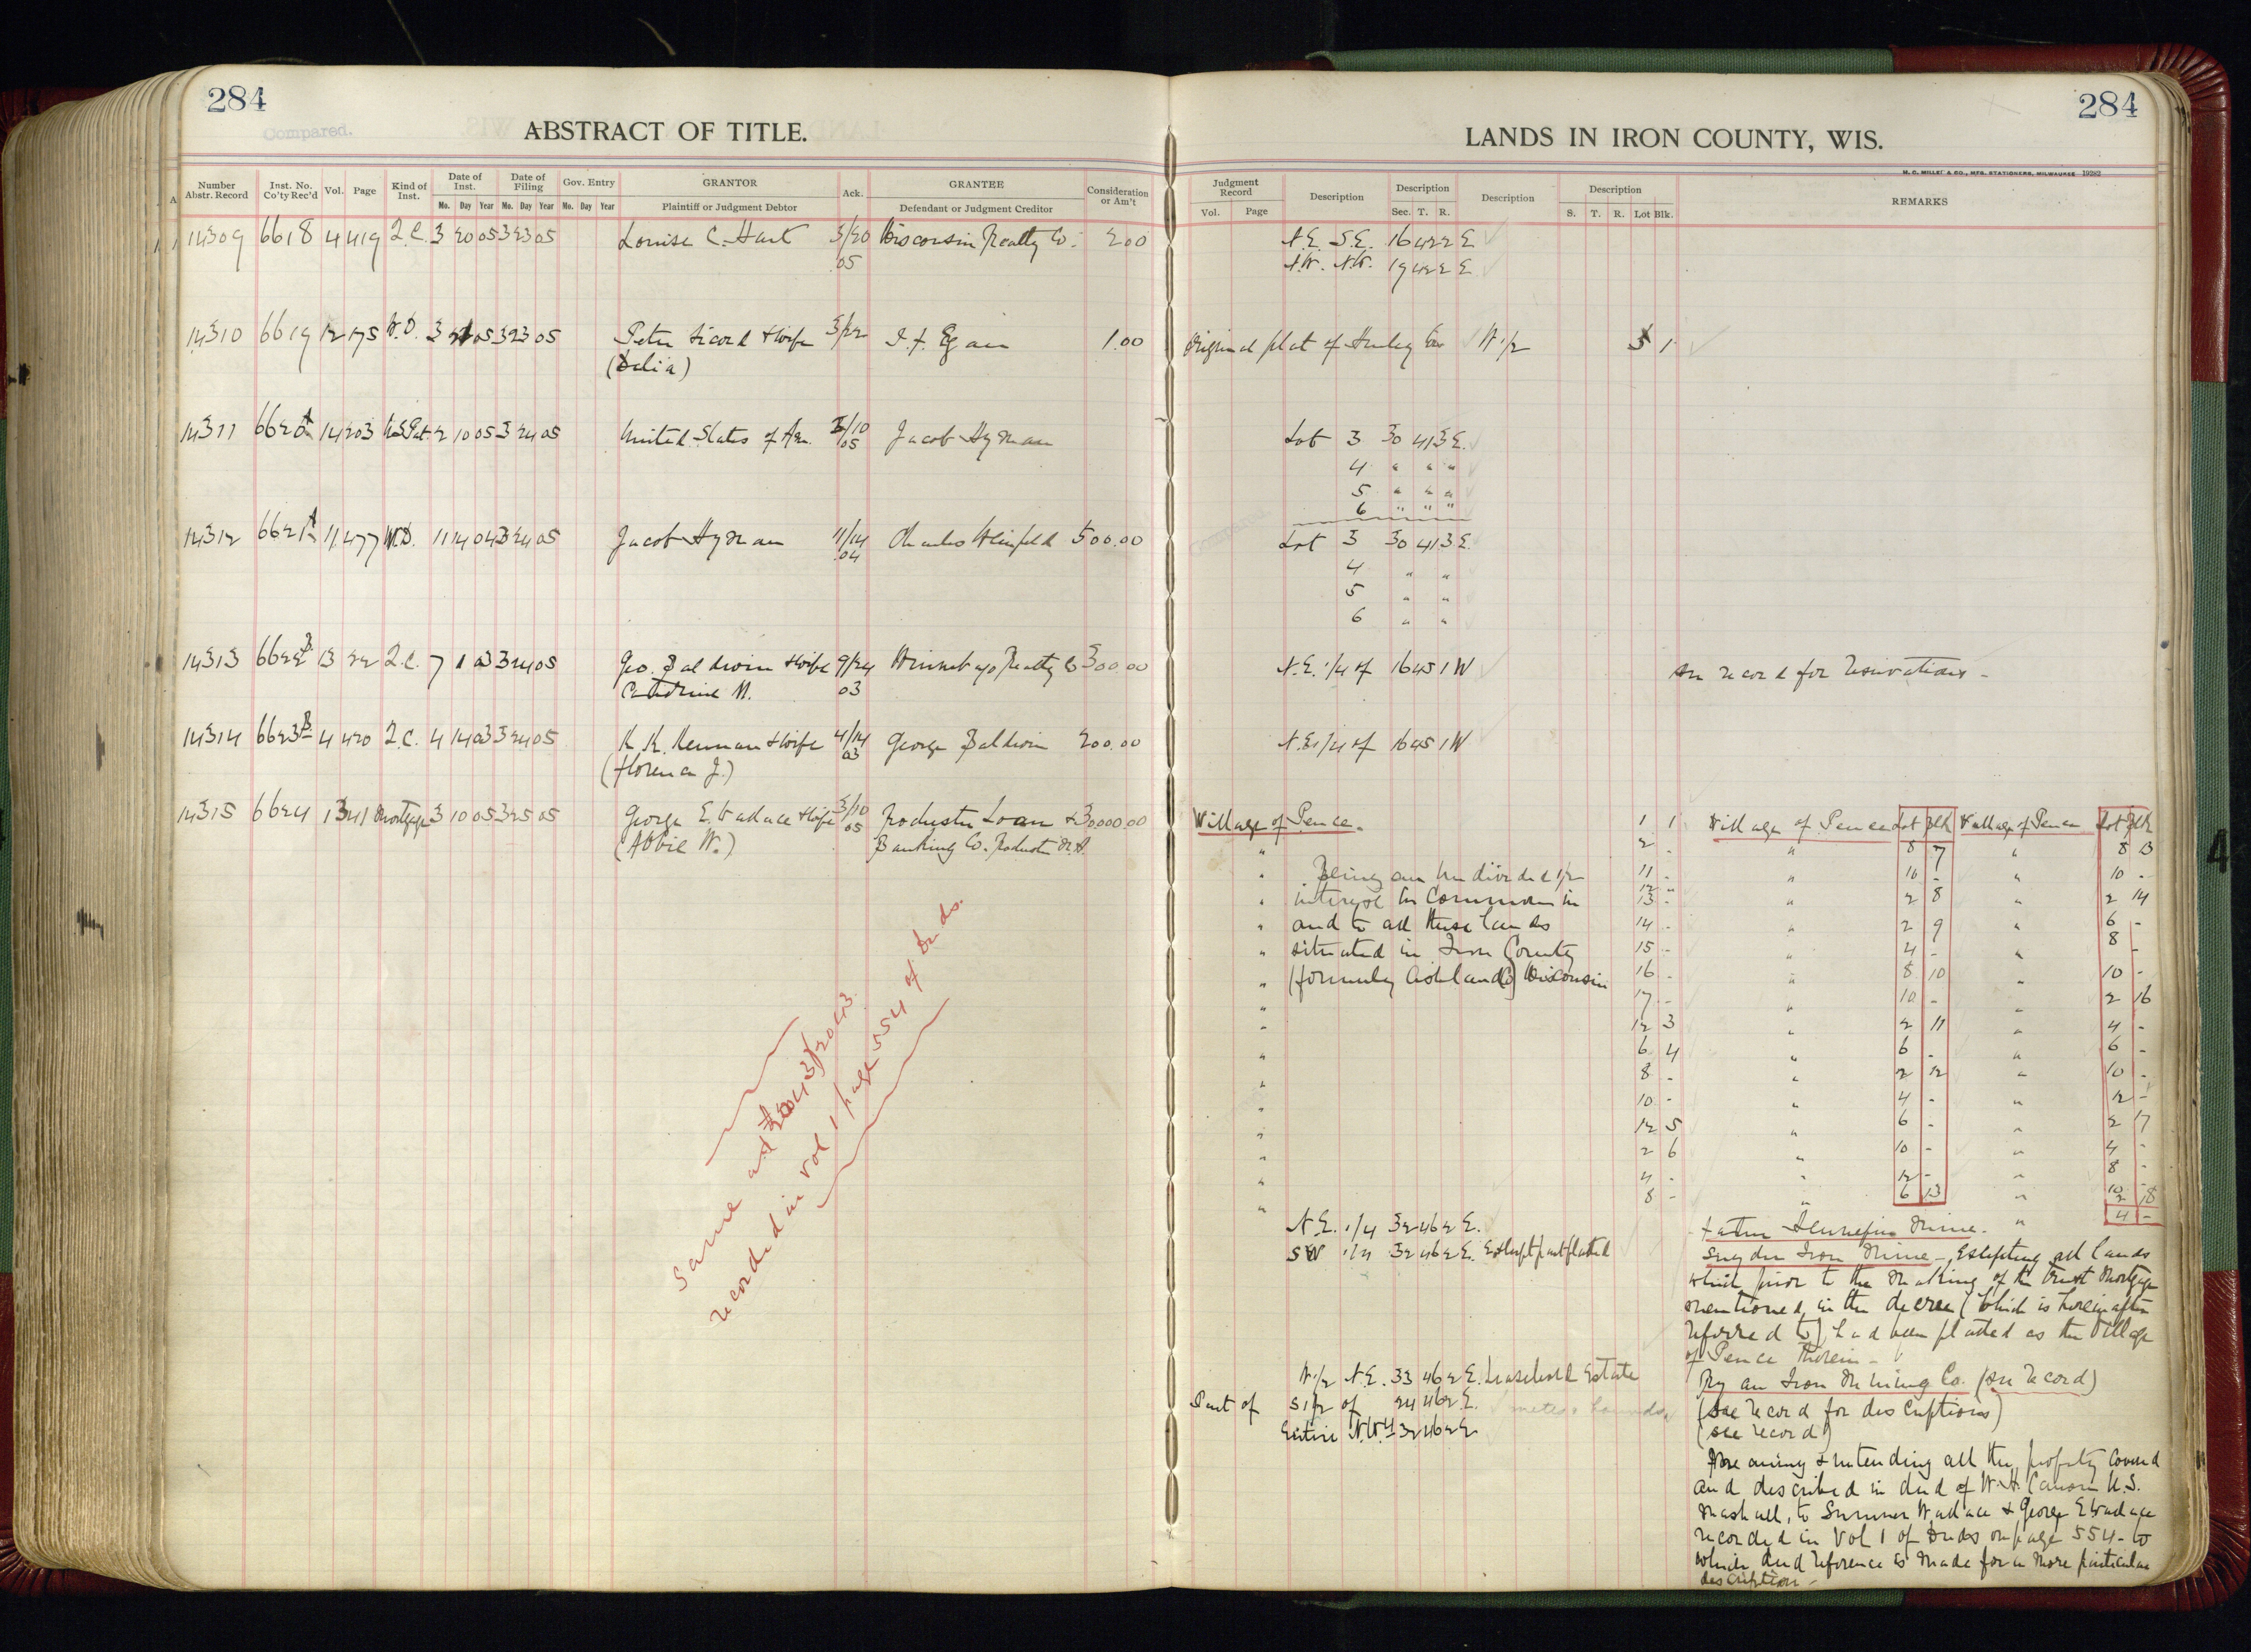 284
Compared.
ABSTRACT OF TITLE.
Number Abstr. Record | Inst. No. Co'ty Rec'd | Vol. | Page | Kind of Inst. | Date of Inst. Mo. Day Year | Date of Filing Mo. Day Year | Gov. Entry Mo. Day Year | GRANTOR Plaintiff or Judgment Debtor | Ack. | GRANTEE Defendant or Judgment Creditor | Consideration or Am't
14309 6618 4 419 Q.C. 3 20 05 3 23 05 Louise C. Hart 3/20 Wisconsin Realty Co. 200
05
14310 6619 12 175 W.D. 3 21 05 3 23 05 Peter Sicord & Wife 3/22 I. F. Egan 1.00
(Delia)
14311 6620 A 14 203 U.S. Pat. 2 10 05 3 24 05 United States of Am. 2/10 Jacob Hyman
05
14312 6621 A 11 477 W.D. 11 14 04 3 24 05 Jacob Hyman 11/14 Charles Weinfeld 500.00
04
14313 6622 B 13 22 Q.C. 7 1 03 3 24 05 Geo. Baldwin & Wife 9/24 Winnebago Realty Co 300.00
Catherine M. 03
14314 6623 B 4 420 Q.C. 4 14 03 3 24 05 K. K. Kennan & Wife 4/14 George Baldwin 200.00
(Florence J.) 03
14315 6624 1 341 Mortgage 3 10 05 3 25 05 George E. Wallace & Wife 3/10 Rochester Loan & 30.000.00
(Abbie W.) 05 Banking Co. Rochester N.H.
Same and
recorded in Vol 1 page 554 of Deeds.
284
LANDS IN IRON COUNTY, WIS.
M. C. MILLER & CO., MFG. STATIONERS, MILWAUKEE 19282
Judgment Record Vol. Page | Description | Description Sec. T. R. | Description | Description S. T. R. Lot Blk. | REMARKS
N.E. S.E. 16 42 2 E
N.W. N.W. 19 42 2 E
Original plat of Hurley W 1/2 5 1
Lot 3 30 41 3 E.
4 " " "
5 " " "
6 " " "
Lot 3 30 41 3 E.
4 " "
5 " "
6 " "
N.E. 1/4 of 16 45 1 W See record for reservations -
N.E. 1/4 of 16 45 1 W
Village of Pence. 1 1 Village of Pence Lot Blk Village of Pence Lot Blk
" 2 - " 8 7 " 8 13
" Being an undivided 1/2 11 - " 10 - " 10 -
12 -
" interest in common in 13 - " 2 8 " 2 14
" and to all these lands 14 - " 2 9 " 6 -
" situated in Iron County 15 - " 4 - " 8 -
" (formerly Ashland Co) Wisconsin 16 - " 8 10 " 10 -
" 17 - " 10 - " 2 16
" 12 3 " 2 11 " 4 -
" 6 4 " 6 - " 6 -
" 8 - " 2 12 " 10 -
" 10 - " 4 - " 12 -
" 12 5 " 6 - " 2 17
" 2 6 " 10 - " 4 -
" 4 - " 12 - " 8 -
" 8 - " 6 13 " 10 -
2 18
" 4 -
N.E. 1/4 32 46 2 E. Father Hennepin Mine.
SW 1/4 32 46 2 E. Except part platted Snyder Iron Mine - Excepting all lands
which prior to the making of the trust Mortgage
mentioned in the decree (which is hereinafter
referred to) had been platted as the Village
of Pence therein -
W 1/2 N.E. 33 46 2 E. Leasehold Estate Ryan Iron Mining Co. (see record)
Part of S 1/2 of 24 46 2 E. metes & bounds (see record for descriptions)
Entire N.W. 1/4 32 46 2 E (see record)
Meaning & intending all the property covered
and described in deed of W. H. Canon U.S.
Marshall, to Sumner Wallace & George E Wallace
recorded in Vol 1 of Deeds on page 554 - to
which deed reference is made for a more particular
description -
4